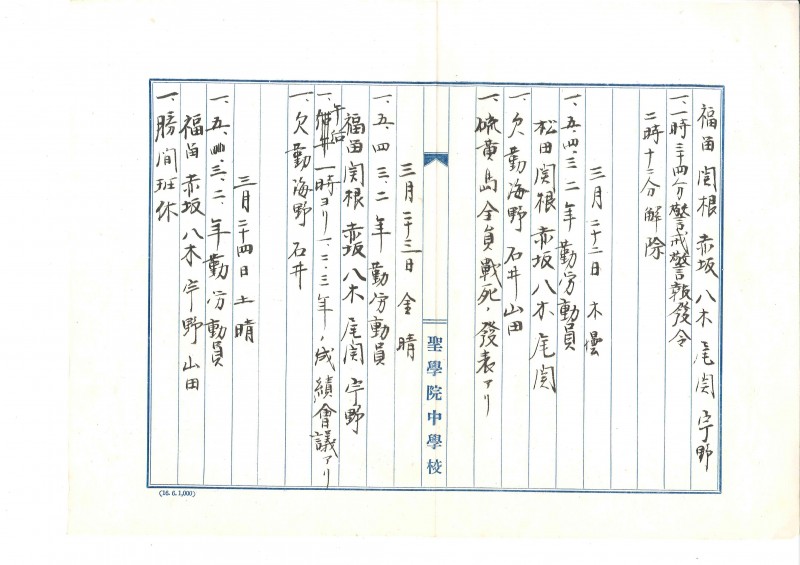 福田 関根 赤坂 八木 尾関 宇野
一、一時三十四分警戒警報発令
二時十二分解除
三月二十二日 木 曇
一、五、四、三、二年勤労動員
松田 関根 赤坂 八木 尾関
一、欠勤 海野 石井 山田
一、硫黄島全員戦死ノ發表アリ
聖學院中學校
三月二十三日 金 晴
一、五、四、三、二年勤労動員
福田 関根 赤坂 八木 尾関 宇野
一、午后一時ヨリ一、二、三年ノ成績會議アリ
一、欠勤 海野 石井
三月二十四日 土 晴
一、五、四、三、二、年勤労動員
福田 赤坂 八木 宇野 山田
一、勝間班休
(16. 6. 1,000)